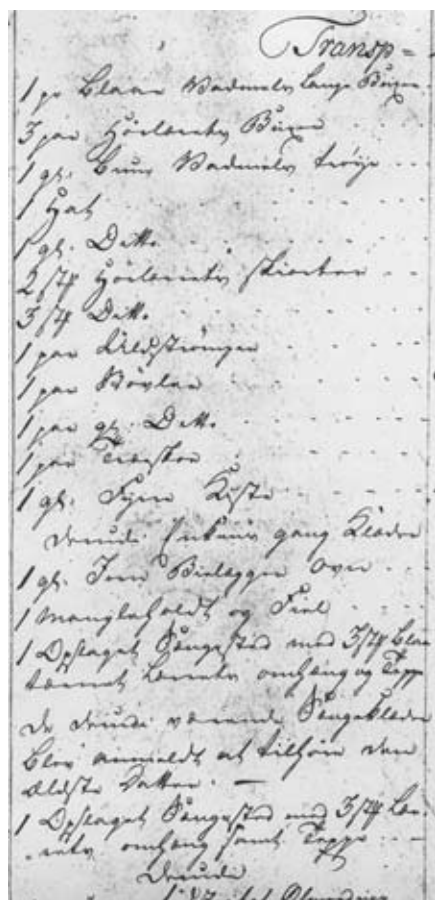 Transp=
1 pr Blaae Vadmels Lange Buxer
3 par Hörlærrets Buxer
1 gl. Bruun Vadmels trøje
1 Hat
1 gl. Ditto
2 stk Hörlærrets skiorter
3 stk Ditto
1 par Uldströmper
1 par Støvler
1 par gl. Ditto
1 par Træskoe
1 gl. Fyrre Kiste
derudi Enkens gang Klæder
1 gl. Jern Bielægger Oven
1 Mangleholdt og Fiel
1 Opslaget Sengested med 3 stk Blaa
tærnet Lærrets omhæng og Kappe
De derudi værende Sengeklæder
blev anmeldt at tilhöre den
ældste Datter. —
1 Opslaget Sengested med 3 stk Lær-
rets omhæng samt Kappe
Derudi